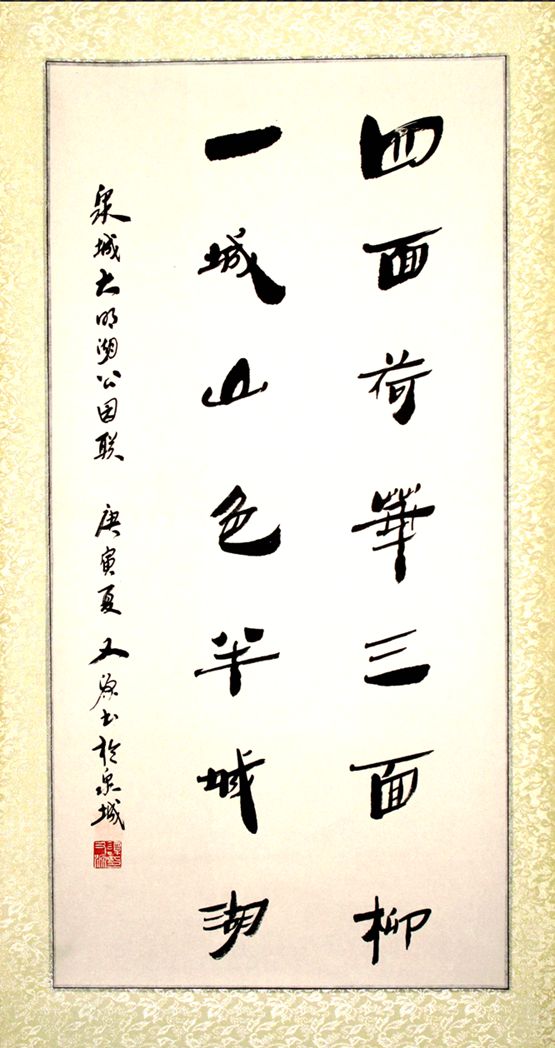 四面荷華三面柳
一城山色半城湖
泉城大明湖公园联 庚寅夏 又源书於泉城